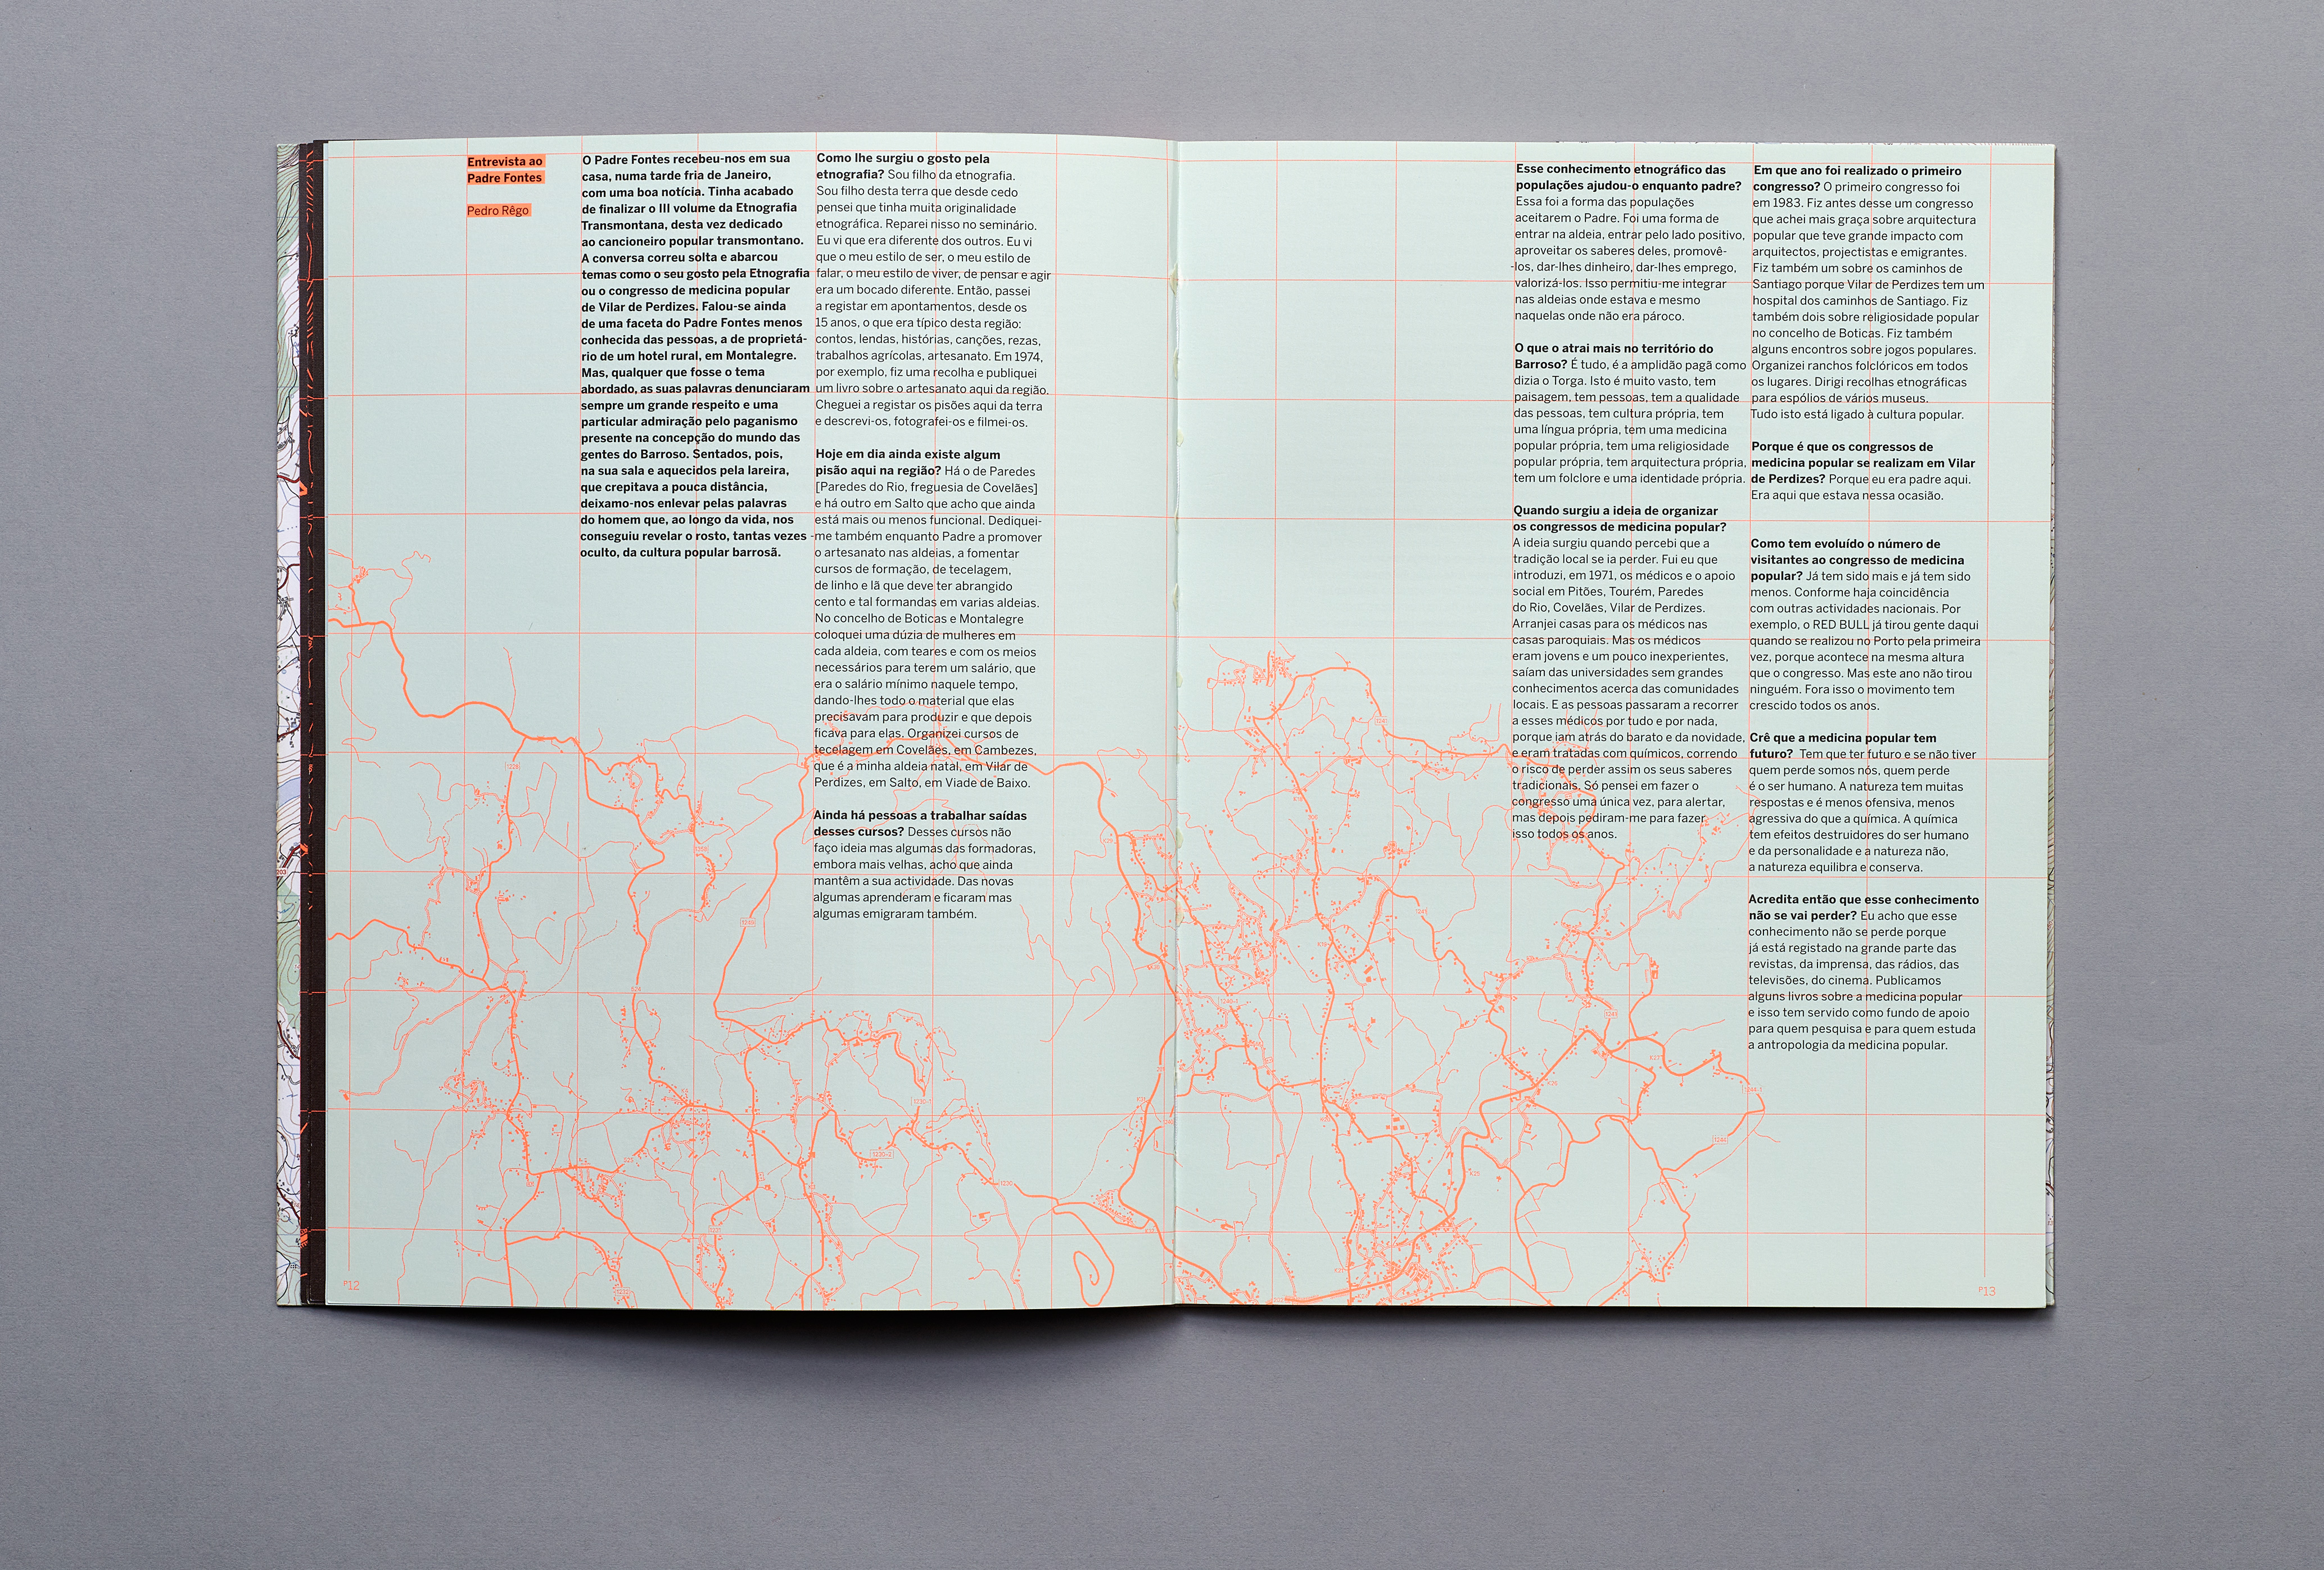 Entrevista ao
Padre Fontes
Pedro Rêgo
O Padre Fontes recebeu-nos em sua
casa, numa tarde fria de Janeiro,
com uma boa notícia. Tinha acabado
de finalizar o III volume da Etnografia
Transmontana, desta vez dedicado
ao cancioneiro popular transmontano.
A conversa correu solta e abarcou
temas como o seu gosto pela Etnografia
ou o congresso de medicina popular
de Vilar de Perdizes. Falou-se ainda
de uma faceta do Padre Fontes menos
conhecida das pessoas, a de proprietá-
rio de um hotel rural, em Montalegre.
Mas, qualquer que fosse o tema
abordado, as suas palavras denunciaram
sempre um grande respeito e uma
particular admiração pelo paganismo
presente na concepção do mundo das
gentes do Barroso. Sentados, pois,
na sua sala e aquecidos pela lareira,
que crepitava a pouca distância,
deixamo-nos enlevar pelas palavras
do homem que, ao longo da vida, nos
conseguiu revelar o rosto, tantas vezes
oculto, da cultura popular barrosã.
Como lhe surgiu o gosto pela
etnografia? Sou filho da etnografia.
Sou filho desta terra que desde cedo
pensei que tinha muita originalidade
etnográfica. Reparei nisso no seminário.
Eu vi que era diferente dos outros. Eu vi
que o meu estilo de ser, o meu estilo de
falar, o meu estilo de viver, de pensar e agir
era um bocado diferente. Então, passei
a registar em apontamentos, desde os
15 anos, o que era típico desta região:
contos, lendas, histórias, canções, rezas,
trabalhos agrícolas, artesanato. Em 1974,
por exemplo, fiz uma recolha e publiquei
um livro sobre o artesanato aqui da região.
Cheguei a registar os pisões aqui da terra
e descrevi-os, fotografei-os e filmei-os.
Hoje em dia ainda existe algum
pisão aqui na região? Há o de Paredes
[Paredes do Rio, freguesia de Covelães]
e há outro em Salto que acho que ainda
está mais ou menos funcional. Dediquei-
-me também enquanto Padre a promover
o artesanato nas aldeias, a fomentar
cursos de formação, de tecelagem,
de linho e lã que deve ter abrangido
cento e tal formandas em varias aldeias.
No concelho de Boticas e Montalegre
coloquei uma dúzia de mulheres em
cada aldeia, com teares e com os meios
necessários para terem um salário, que
era o salário mínimo naquele tempo,
dando-lhes todo o material que elas
precisavam para produzir e que depois
ficava para elas. Organizei cursos de
tecelagem em Covelães, em Cambezes,
que é a minha aldeia natal, em Vilar de
Perdizes, em Salto, em Viade de Baixo.
Ainda há pessoas a trabalhar saídas
desses cursos? Desses cursos não
faço ideia mas algumas das formadoras,
embora mais velhas, acho que ainda
mantêm a sua actividade. Das novas
algumas aprenderam e ficaram mas
algumas emigraram também.
P12
Esse conhecimento etnográfico das
populações ajudou-o enquanto padre?
Essa foi a forma das populações
aceitarem o Padre. Foi uma forma de
entrar na aldeia, entrar pelo lado positivo,
aproveitar os saberes deles, promovê-
-los, dar-lhes dinheiro, dar-lhes emprego,
valorizá-los. Isso permitiu-me integrar
nas aldeias onde estava e mesmo
naquelas onde não era pároco.
O que o atrai mais no território do
Barroso? É tudo, é a amplidão pagã como
dizia o Torga. Isto é muito vasto, tem
paisagem, tem pessoas, tem a qualidade
das pessoas, tem cultura própria, tem
uma língua própria, tem uma medicina
popular própria, tem uma religiosidade
popular própria, tem arquitectura própria,
tem um folclore e uma identidade própria.
Quando surgiu a ideia de organizar
os congressos de medicina popular?
A ideia surgiu quando percebi que a
tradição local se ia perder. Fui eu que
introduzi, em 1971, os médicos e o apoio
social em Pitões, Tourém, Paredes
do Rio, Covelães, Vilar de Perdizes.
Arranjei casas para os médicos nas
casas paroquiais. Mas os médicos
eram jovens e um pouco inexperientes,
saíam das universidades sem grandes
conhecimentos acerca das comunidades
locais. E as pessoas passaram a recorrer
a esses médicos por tudo e por nada,
porque iam atrás do barato e da novidade,
e eram tratadas com químicos, correndo
o risco de perder assim os seus saberes
tradicionais. Só pensei em fazer o
congresso uma única vez, para alertar,
mas depois pediram-me para fazer
isso todos os anos.
Em que ano foi realizado o primeiro
congresso? O primeiro congresso foi
em 1983. Fiz antes desse um congresso
que achei mais graça sobre arquitectura
popular que teve grande impacto com
arquitectos, projectistas e emigrantes.
Fiz também um sobre os caminhos de
Santiago porque Vilar de Perdizes tem um
hospital dos caminhos de Santiago. Fiz
também dois sobre religiosidade popular
no concelho de Boticas. Fiz também
alguns encontros sobre jogos populares.
Organizei ranchos folclóricos em todos
os lugares. Dirigi recolhas etnográficas
para espólios de vários museus.
Tudo isto está ligado à cultura popular.
Porque é que os congressos de
medicina popular se realizam em Vilar
de Perdizes? Porque eu era padre aqui.
Era aqui que estava nessa ocasião.
Como tem evoluído o número de
visitantes ao congresso de medicina
popular? Já tem sido mais e já tem sido
menos. Conforme haja coincidência
com outras actividades nacionais. Por
exemplo, o RED BULL já tirou gente daqui
quando se realizou no Porto pela primeira
vez, porque acontece na mesma altura
que o congresso. Mas este ano não tirou
ninguém. Fora isso o movimento tem
crescido todos os anos.
Crê que a medicina popular tem
futuro? Tem que ter futuro e se não tiver
quem perde somos nós, quem perde
é o ser humano. A natureza tem muitas
respostas e é menos ofensiva, menos
agressiva do que a química. A química
tem efeitos destruidores do ser humano
e da personalidade e a natureza não,
a natureza equilibra e conserva.
Acredita então que esse conhecimento
não se vai perder? Eu acho que esse
conhecimento não se perde porque
já está registado na grande parte das
revistas, da imprensa, das rádios, das
televisões, do cinema. Publicamos
alguns livros sobre a medicina popular
e isso tem servido como fundo de apoio
para quem pesquisa e para quem estuda
a antropologia da medicina popular.
P13